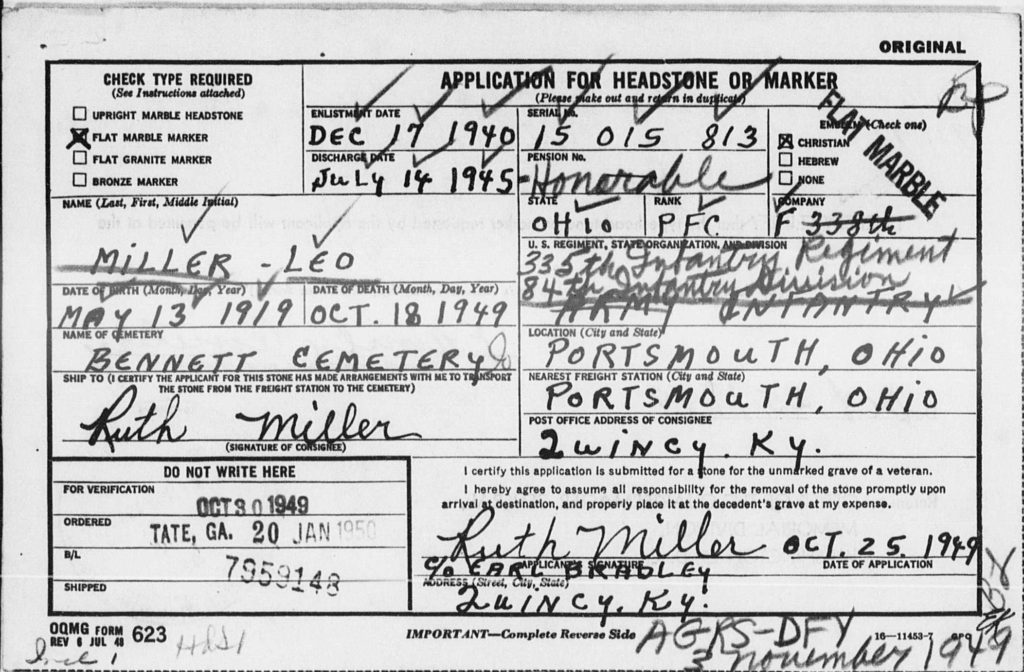 ORIGINAL
CHECK TYPE REQUIRED
(See Instructions attached)
UPRIGHT MARBLE HEADSTONE
FLAT MARBLE MARKER
FLAT GRANITE MARKER
BRONZE MARKER
APPLICATION FOR HEADSTONE OR MARKER
(Please make out and return in duplicate)
ENLISTMENT DATE
DEC 17 1940
DISCHARGE DATE
JULY 14 1945
SERIAL No.
15 015 813
PENSION No.
Honorable
EMBLEM (Check one)
CHRISTIAN
HEBREW
NONE
FLAT MARBLE
NAME (Last, First, Middle Initial)
MILLER - LEO
STATE
OHIO
RANK
PFC
COMPANY
F 338th
U. S. REGIMENT, STATE ORGANIZATION, AND DIVISION
335th Infantry Regiment
84th Infantry Division
ARMY INFANTRY
DATE OF BIRTH (Month, Day, Year)
MAY 13 1919
DATE OF DEATH (Month, Day, Year)
OCT. 18 1949
NAME OF CEMETERY
BENNETT CEMETERY
LOCATION (City and State)
PORTSMOUTH, OHIO
SHIP TO (I CERTIFY THE APPLICANT FOR THIS STONE HAS MADE ARRANGEMENTS WITH ME TO TRANSPORT
THE STONE FROM THE FREIGHT STATION TO THE CEMETERY)
Ruth Miller
(SIGNATURE OF CONSIGNEE)
NEAREST FREIGHT STATION (City and State)
PORTSMOUTH, OHIO
POST OFFICE ADDRESS OF CONSIGNEE
QUINCY. KY.
DO NOT WRITE HERE
FOR VERIFICATION
OCT 30 1949
ORDERED
TATE, GA. 20 JAN 1950
B/L
7959148
SHIPPED
I certify this application is submitted for a stone for the unmarked grave of a veteran.
I hereby agree to assume all responsibility for the removal of the stone promptly upon
arrival at destination, and properly place it at the decedent's grave at my expense.
Ruth Miller OCT. 25. 1949
APPLICANT'S SIGNATURE DATE OF APPLICATION
C/O EARL BRADLEY
ADDRESS (Street, City, State)
QUINCY. KY.
OQMG FORM 623
REV 6 JUL 48
IMPORTANT—Complete Reverse Side
16—11453-7 GPO
AGRS-DFY
3 November 1949